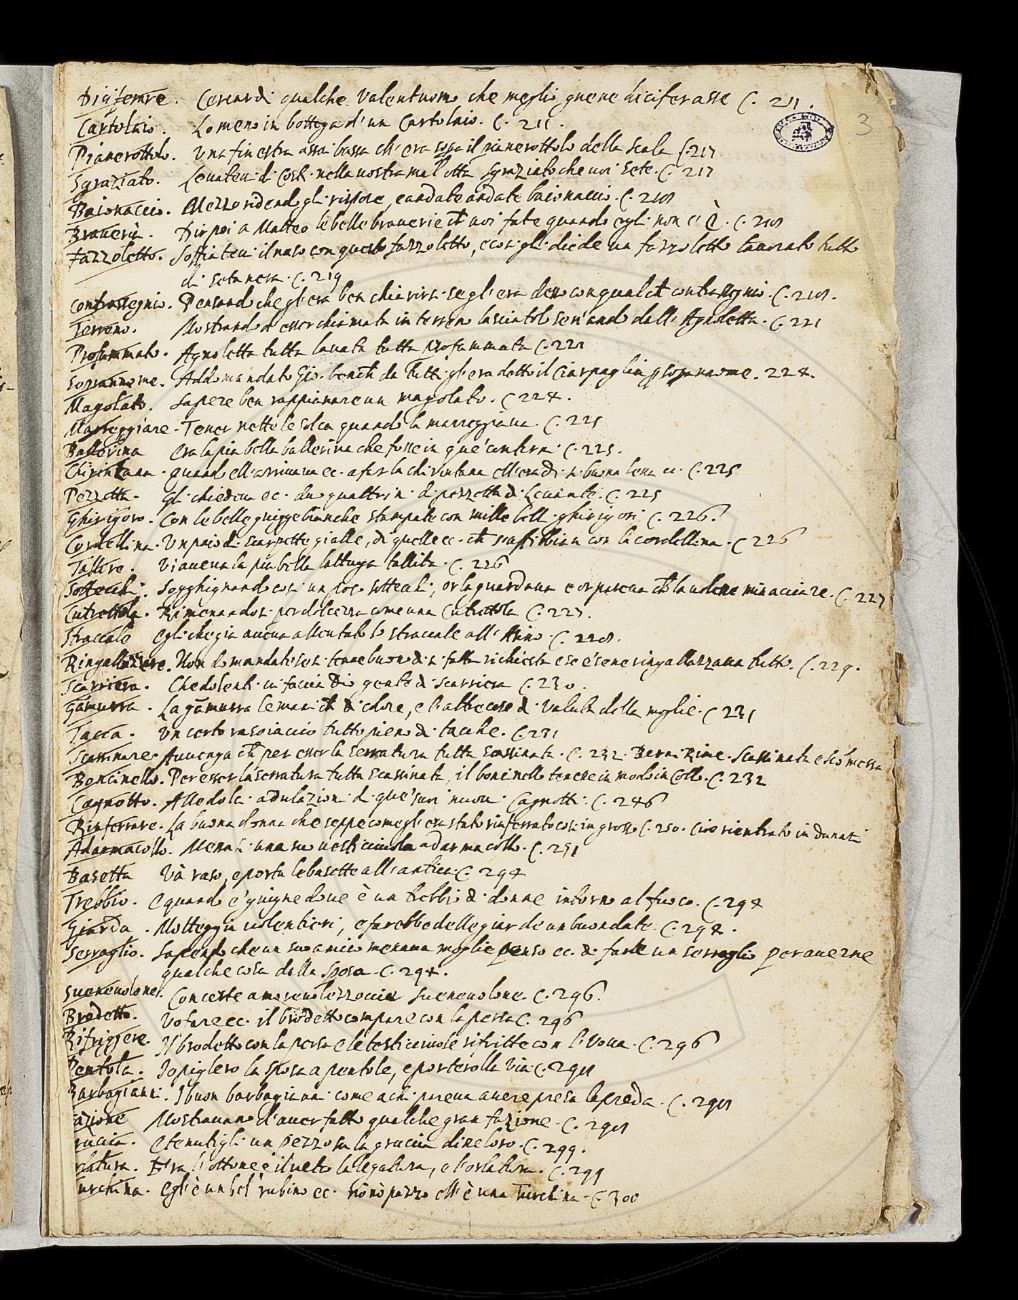 3
Diciferare. Cercar di qualche valentuomo che meglio gnene diciferasse C. 211.
Cartolaio. Lo meno in bottega d'un Cartolaio. C. 211.
Pianerottolo. Una finestra assai bassa ch'era sopra il pianerottolo della scala C. 217
Sgraziato. che voi sete. C. 217
Baionaccio. Mezzo ridendo gli rispose, e andate andate baionaccio. C. 218
Braverie. Dipoi a Matteo le belle braverie ch voi fate quando egli non c'è. C. 218
Fazzoletto. Soffiatevi il naso con questo fazzoletto, e così gli diede un fazzoletto lavorato tutto
di seta nera. C. 219
Contrassegnio. Pensando che gl'era ben chiarirsi se gl'era desso con qualch contrassegnio. C. 218.
Terreno. Mostrando d'esser chiamata in terreno lasciatolo serrando dall'Agnoletta. C. 221
Profummato. Agnoletta tutta lavata tutta profummata C. 221
Soprannome. Addomandato Gio. bench da tutti gl'era detto il Ciarpaglia p soprannome. 224.
Magolato. Sapere ben rappianare un magolato. C. 224.
Marreggiare. Tener nette le solca quando la marreggiava. C. 225
Ballerina Era la più bella ballerina che fosse in que' contorni. C. 225.
Chirintana. quando ell'arrivava ec. a far la chirintana ell'era di sì buona lena ec. C. 225
Pezzetta. Gli chiedeva ec. duo quattrin di pezzetta di Levante. C. 225
Ghirigoro. Con le belle guigge bianche stampate con mille belli ghirigori C. 226.
Cordellina. Un paio di scarpette gialle, di quelle ec. ch s'affibbian con la cordellina. C 226
Tallire. Vi aveva la più bella lattuga tallita. C. 226
Sottecchi. Sogghignando così un poco sottecchi, or la guardava e or pareva ch la volesse minacciare. C. 227
Cutrettola. Rimenandosi per dolcezza come una Cutrettola C. 227.
Straccale Egli che già aveva allentato lo straccale all'Asino C. 228.
Ringalluzzare. tenne buono di sì fatta richiesta e se n'era ringalluzzato tutto. C. 229.
Scarriera. Che dolenti vi faccia Dio gente di scarriera C. 230.
Gamurra. La gamurra le manich di colore, e l'altre cose di valuta della moglie. C 231
Tacca. Un certo rasoiaccio tutto pieno di tacche. C. 231
Scassinare. Avvenga ch per esser la serratura tutta scassinata. C. 232. Berni Rime. Scassinata
Boncinello. Per esser la serratura tutta scassinata, il boncinello tenesse in modo in Collo. C. 232
Cagnotto. Alle dolci adulazioni di que' suoi nuovi Cagnotti. C. 246
Rinferrare. La buona donna che seppe come gl'era stato rinferrato così in grosso C. 250. Cioè rientrato in danari
Adarmacollo. Messasi una sua vesticciuola ad armacollo. C. 251
Basetta Và raso, e porta le basette all'antica C. 294
Trebbio. E quando e' giugne dove è un trebbio di donne intorno al fuoco. C. 294
Giarda. Motteggia volentieri, e farebbe delle giarde un buondate. C. 294.
Serraglio. Sapendo che un suo amico menava moglie penso ec. di farle un serraglio per averne
qualche cosa dalla Sposa. C. 294.
Svenevolone. Con ceste amorevolezzoccie svenevolone. C. 296.
Brodetto. Vo fare ec. il brodetto compare con la persa C. 296
Rifriggere. Il brodetto con la persa e le testiccuiole rifritte con l'Uova. C. 296
Pentola. Io piglero la sposa a pentole, e porterolla via C. 298
Barbagianni. I buon barbagianni come a chi pareva avere presa la preda. C. 298
azione Mostravano d'aver fatto qualche gran fazione. C. 298
ruccia. E tenutigli un pezzo su la gruccia dine loro. C. 299.
rlatura. Era l'ottone e il vetro la legatura, e l'orlatura. C. 299
urchina. Egli è un bel rubino ec. nonò pazzo ell'è una Turchina. C 300